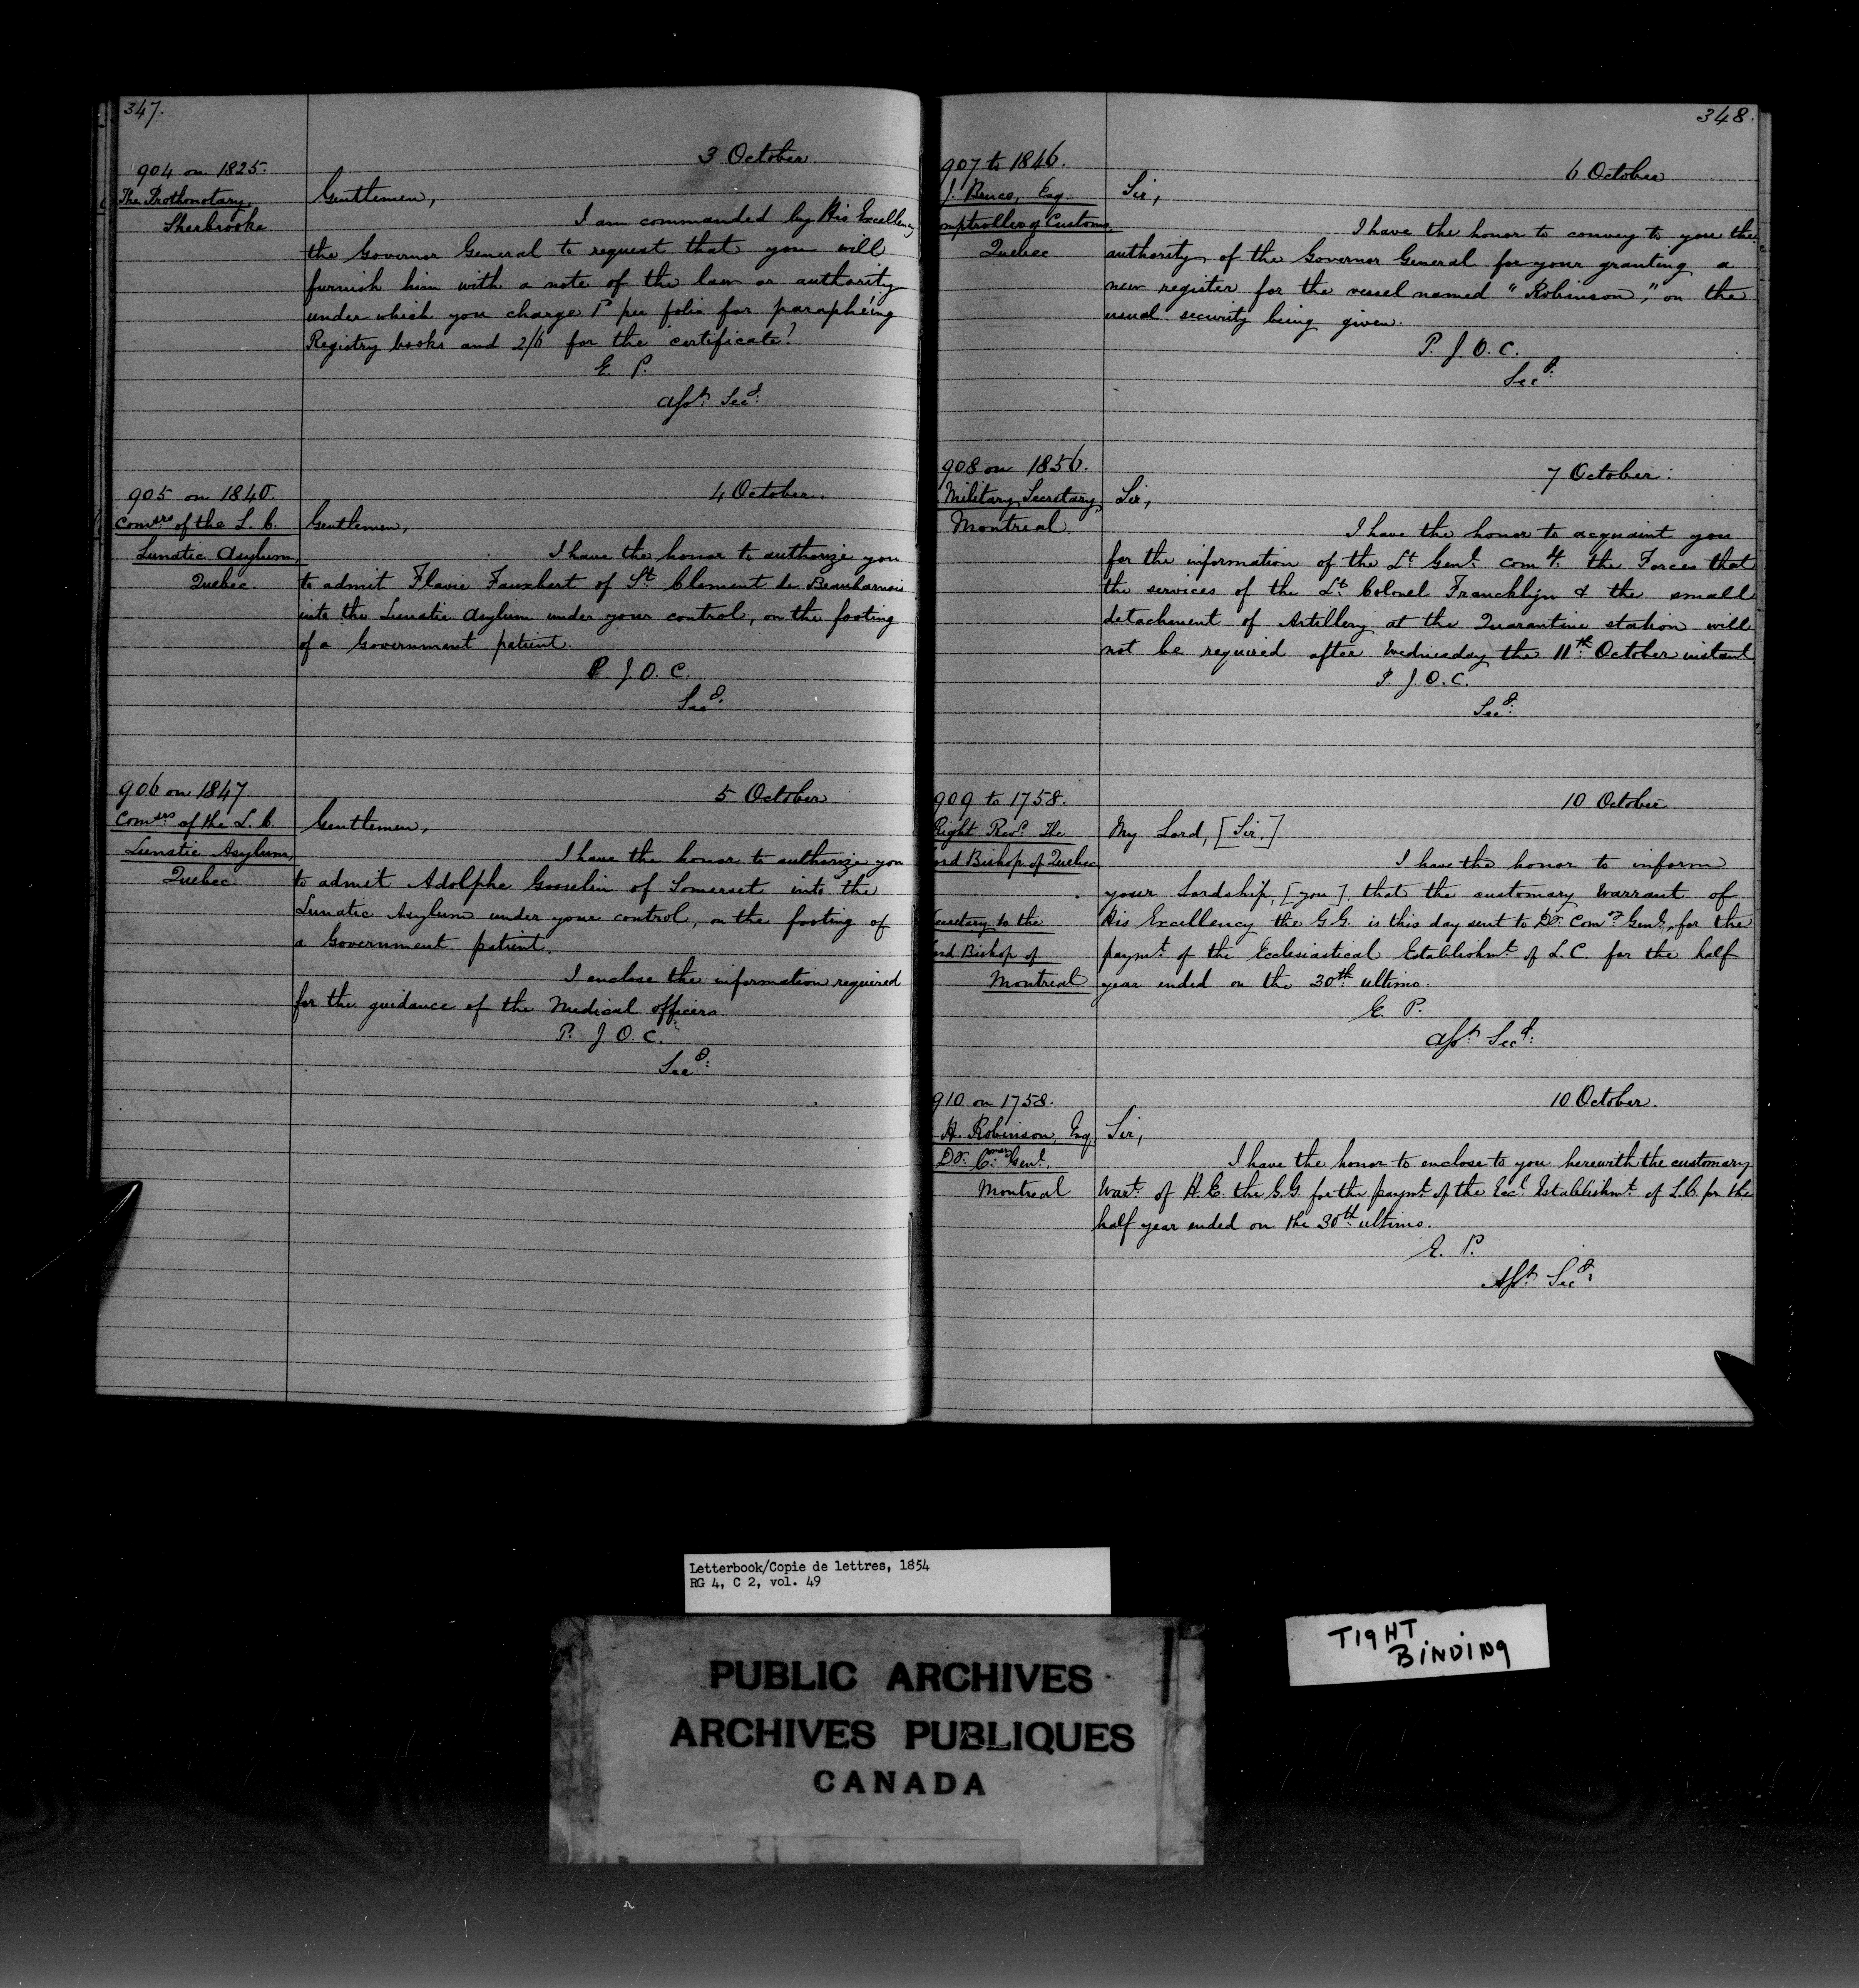 347.
3 October.
904 on 1825.
The Prothonotary,
Sherbrooke
Gentlemen,
I am commanded by His Excellency
the Governor General to request that you will
furnish him with a note of the law or authority
under which you charge 1d per folio for parapheing
Registry books and 2/6 for the certificate?
E. P.
Asst. Secy.
905 on 1840.
4 October.
Comers of the L. C.
Lunatic Asylum,
Quebec.
Gentlemen,
I have the honor to authorize you
to admit Flavie of St. Clement de Beauharnois
into the Lunatic Asylum under your control, on the footing
of a Government patient.
P. J. O. C.
Secy.
906 on 1847.
5 October
Comers of the L. C.
Lunatic Asylum,
Quebec
Gentlemen,
I have the honor to authorize you
to admit Adolphe Gosselin of Somerset into the
Lunatic Asylum under your control, on the footing of
a Government patient.
I enclose the information required
for the guidance of the Medical officers
P. J. O. C.
Secy.
348.
907 to 1846.
6 October
J. Bruce, Esq.
omptroller of Customs,
Quebec
Sir,
I have the honor to convey to you the
authority of the Governor General for your granting a
new register for the vessel named "Robinson," on the
usual security being given.
P. J. O. C.
Secy.
908 on 1856.
7 October.
Military Secretary,
Montreal
Sir,
I have the honor to acquaint you
for the information of the Lt. Genl. comg. the Forces that
the services of the Lt. Colonel Francklyn & the small
detachment of Artillery at the Quarantine station will
not be required after Wednesday the 11th. October instant
P. J. O. C.
Secy.
909 to 1758.
10 October
Right Revd. The
ord Bishop of Quebec
Secretary to the
ord Bishop of
Montreal
My Lord, [Sir,]
I have the honor to inform
your Lordship, [you], that the customary Warrant of
His Excellency the G.G. is this day sent to Dy. Comy. Genl. for the
paymt. of the Ecclesiastical Establishmt. of L.C. for the half
year ended on the 30th. ultimo.
E. P.
Asst. Secy.
910 on 1758.
10 October.
H. Robinson, Esq.
Dy. Cmery. Genl.
Montreal
Sir,
I have the honor to enclose to you herewith the customary
Wart. of H.E. the G.G. for the paymt. of the Eccl. Establishmt. of L.C. for the
half year ended on the 30th. ultimo.
E. P.
Asst. Secy.
Letterbook/Copie de lettres, 1854
RG 4, C 2, vol. 49
TIGHT
BINDING
PUBLIC ARCHIVES
ARCHIVES PUBLIQUES
CANADA